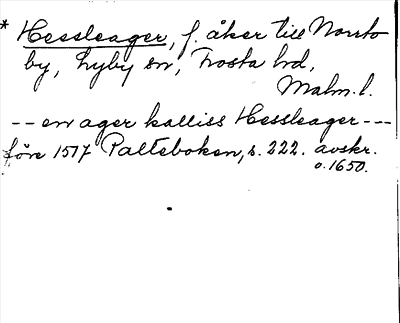 * Hessleager, f. åker till Norrto
by, Lyby sn, Frosta hd,
Malm. l.
-- en ager kalliss Hessleager ---
före 1517 Palteboken, s. 222. avskr.
o. 1650.